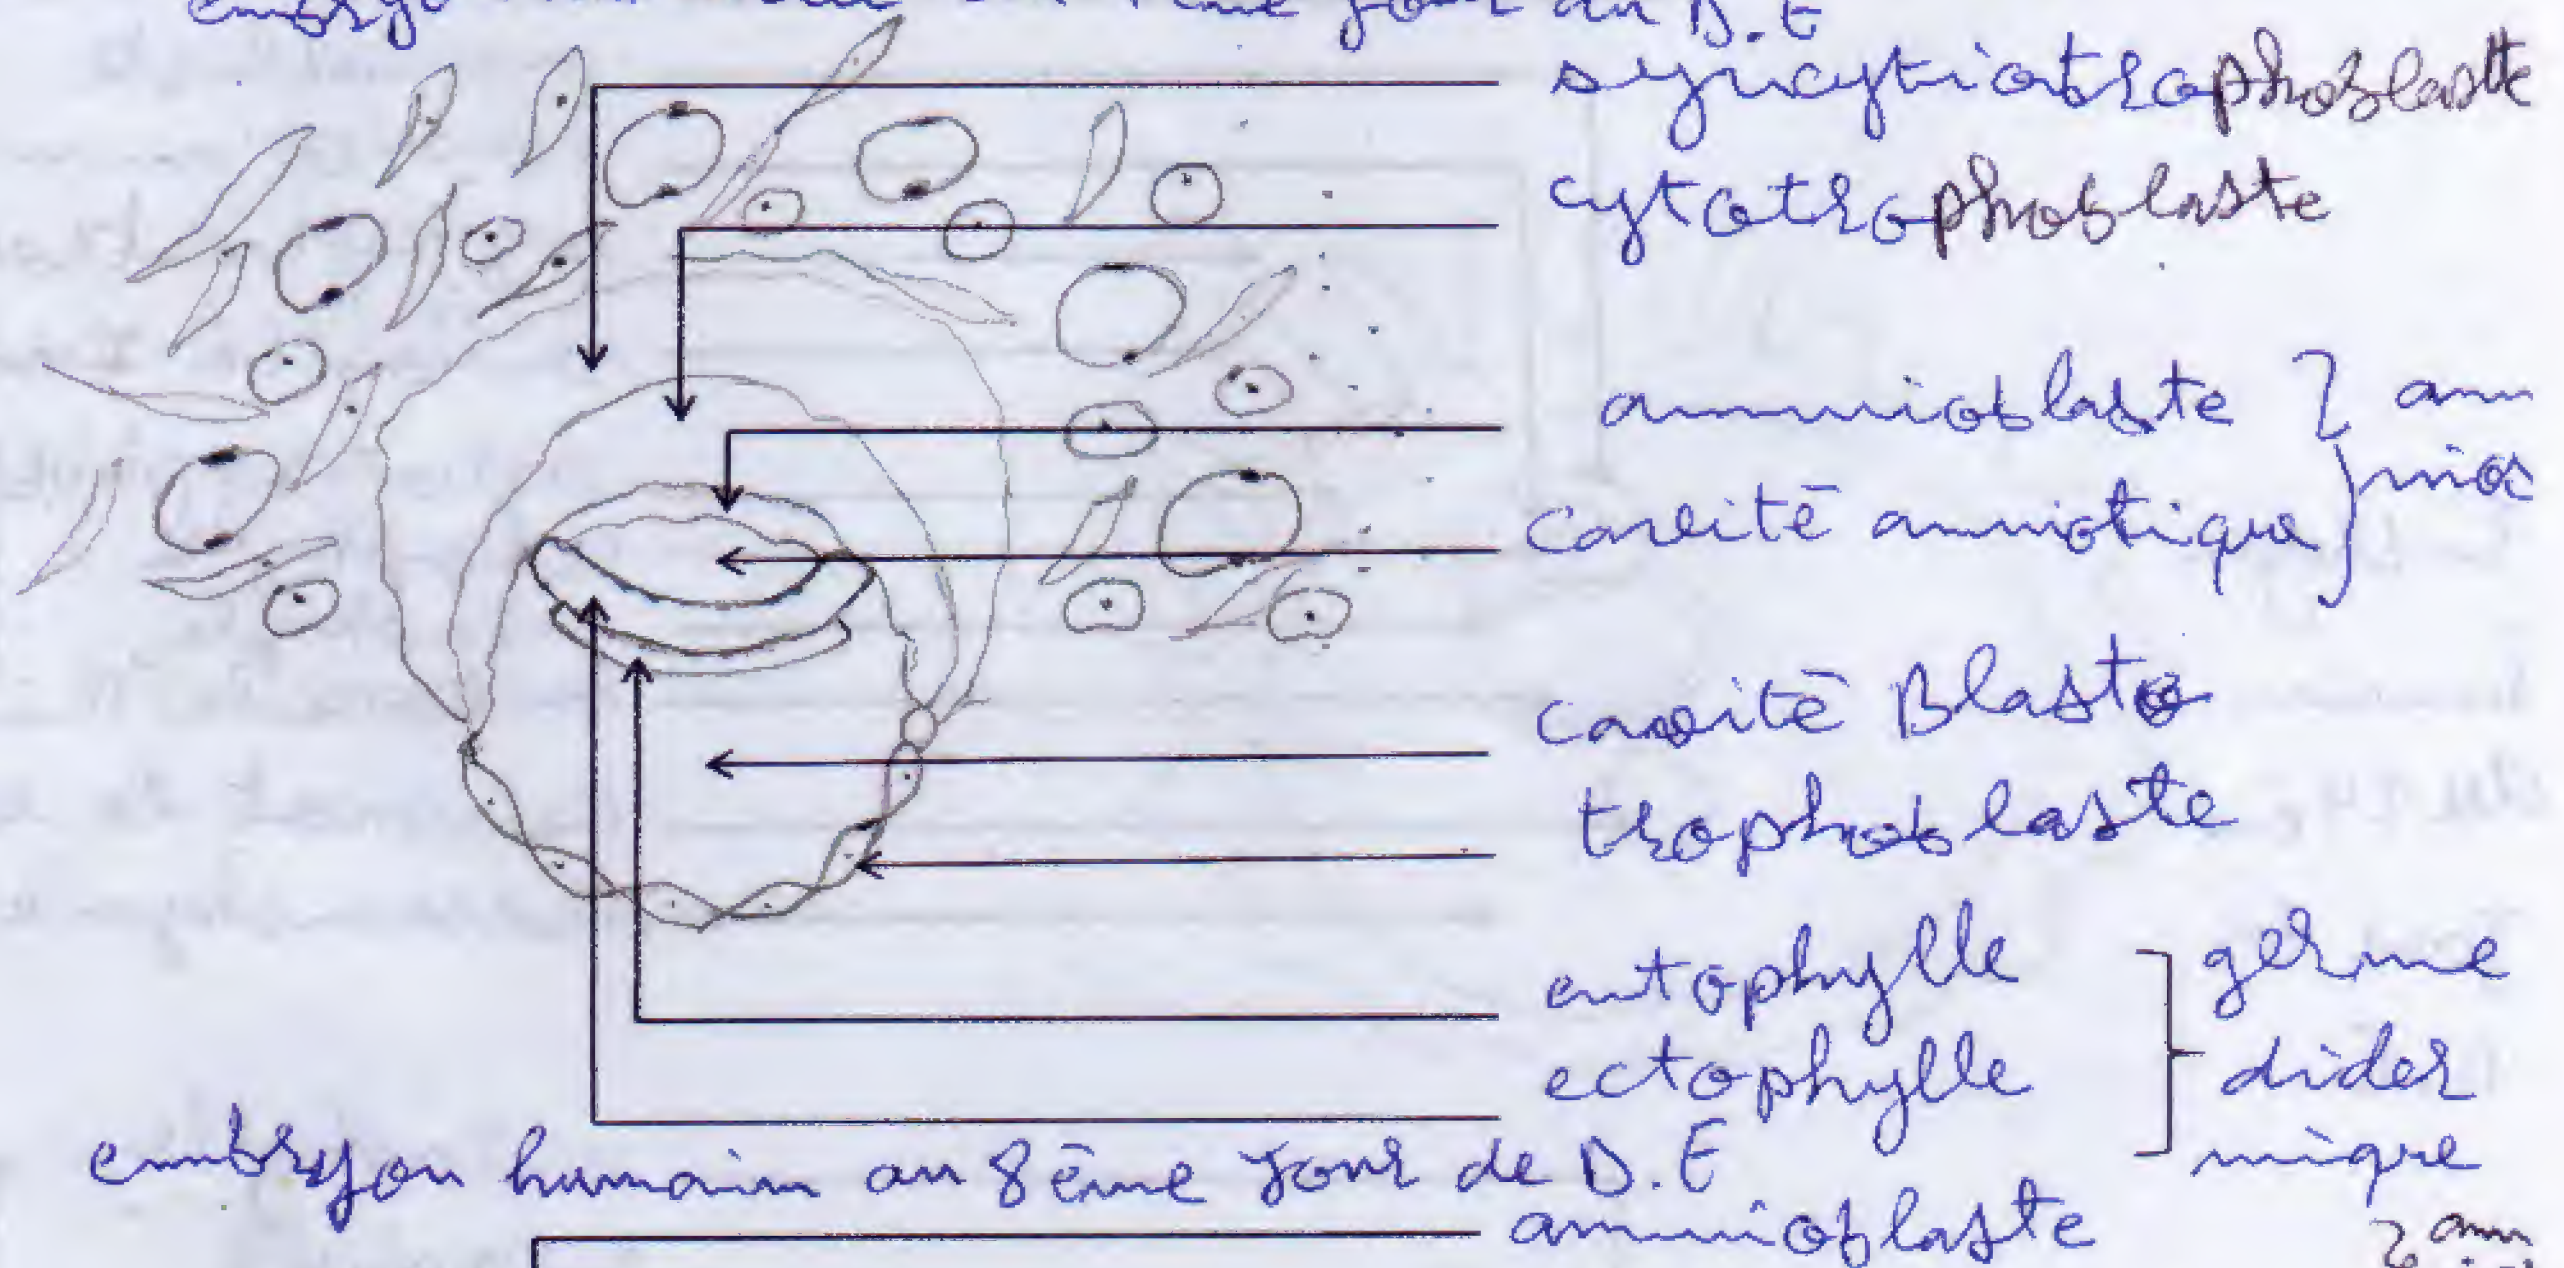 syncytiotrophoblaste
cytotrophoblaste
amnioblaste } am
cavité amniotique } nios
cavité Blasto
trophoblaste
entophylle
ectophylle
germe
dider
mique
embryon humain au 8ème jour de D.E
amnioblaste